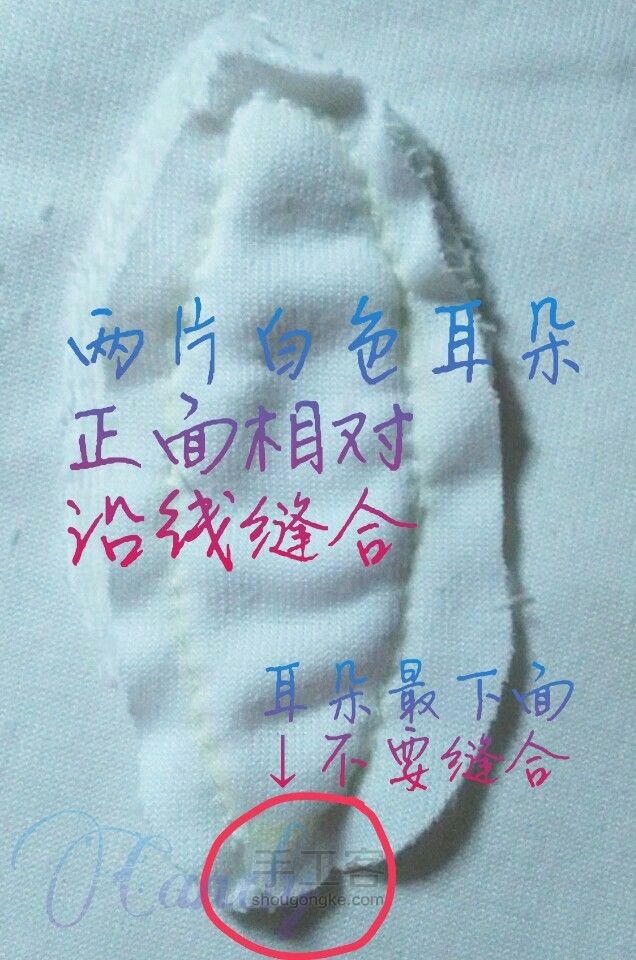 两片白色耳朵
正面相对
沿线缝合
耳朵最下面
↓不要缝合
Candy
手工客
shougongke.com